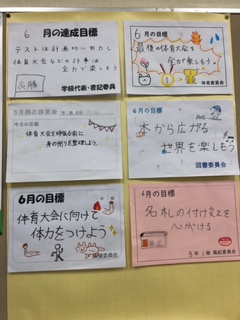 6月の達成目標
テストは計画的に努力し
体育大会などの行事は
全力で楽しもう
必勝
学級代表・書記委員
6月の目標
最後の体育大会を
全力で楽しもう
体育委員会
今月の目標
体育大会を呼びかけに
身の周りを整理しよう。
6月の目標
本から広がる
世界を楽しもう
図書委員会
6月の目標
体育大会に向けて
体力をつけよう
保健委員会
6月の目標
名札の付け忘れを
心がける
風紀委員会